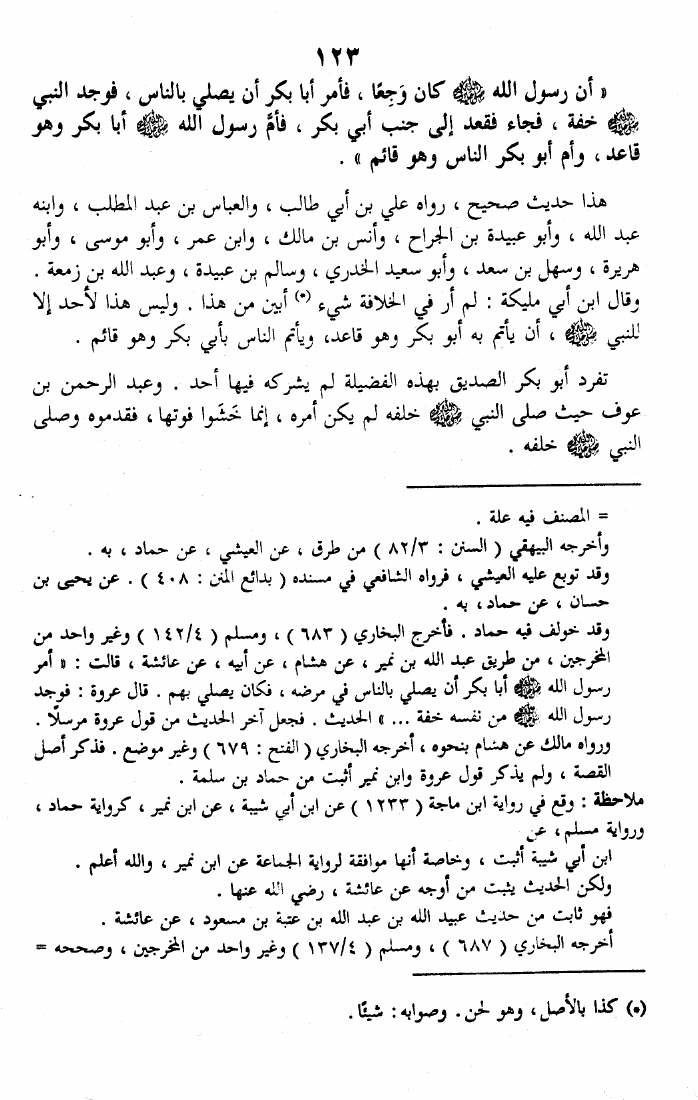 ١٢٣
« أن رسول الله ﷺ كان وَجِعًا ، فأمر أبا بكر أن يصلي بالناس ، فوجد النبي
ﷺ خفة ، فجاء فقعد إلى جنب أبي بكر ، فأمَّ رسول الله ﷺ أبا بكر وهو
قاعد ، وأم أبو بكر الناس وهو قائم » .
هذا حديث صحيح ، رواه علي بن أبي طالب ، والعباس بن عبد المطلب ، وابنه
عبد الله ، وأبو عبيدة بن الجراح ، وأنس بن مالك ، وابن عمر ، وأبو موسى ، وأبو
هريرة ، وسهل بن سعد ، وأبو سعيد الخدري ، وسالم بن عبيدة ، وعبد الله بن زمعة .
وقال ابن أبي مليكة : لم أر في الخلافة شيء (*) أبين من هذا . وليس هذا لأحد إلا
للنبي ﷺ ، أن يأتم به أبو بكر وهو قاعد، ويأتم الناس بأبي بكر وهو قائم .
تفرد أبو بكر الصديق بهذه الفضيلة لم يشركه فيها أحد . وعبد الرحمن بن
عوف حيث صلى النبي ﷺ خلفه لم يكن أمره ، إنما خَشَوا فوتها ، فقدموه وصلى
النبي ﷺ خلفه .
= المصنف فيه علة .
وأخرجه البيهقي ( السنن : ٨٢/٣ ) من طرق ، عن العيشي ، عن حماد ، به .
وقد توبع عليه العيشي ، فرواه الشافعي في مسنده ( بدائع المنن : ٤٠٨ ) . عن يحيى بن
حسان ، عن حماد ، به .
وقد خولف فيه حماد . فأخرج البخاري ( ٦٨٣ ) ، ومسلم ( ١٤٢/٤ ) وغير واحد من
المخرجين ، من طريق عبد الله بن نمير ، عن هشام ، عن أبيه ، عن عائشة ، قالت : « أمر
رسول الله ﷺ أبا بكر أن يصلي بالناس في مرضه ، فكان يصلي بهم . قال عروة : فوجد
رسول الله ﷺ من نفسه خفة ... » الحديث . فجعل آخر الحديث من قول عروة مرسلًا .
ورواه مالك عن هشام بنحوه ، أخرجه البخاري ( الفتح : ٦٧٩ ) وغير موضع . فذكر أصل
القصة ، ولم يذكر قول عروة وابن نمير أثبت من حماد بن سلمة .
ملاحظة : وقع في رواية ابن ماجة ( ١٢٣٣ ) عن ابن أبي شيبة ، عن ابن نمير ، كرواية حماد ،
ورواية مسلم ، عن
ابن أبي شيبة أثبت ، وخاصة أنها موافقة لرواية الجماعة عن ابن نمير ، والله أعلم .
ولكن الحديث يثبت من أوجه عن عائشة ، رضي الله عنها .
فهو ثابت من حديث عبيد الله بن عبد الله بن عتبة بن مسعود ، عن عائشة .
أخرجه البخاري ( ٦٨٧ ) ، ومسلم ( ١٣٧/٤ ) وغير واحد من المخرجين ، وصححه =
(*) كذا بالأصل ، وهو لحن . وصوابه : شيئًا .